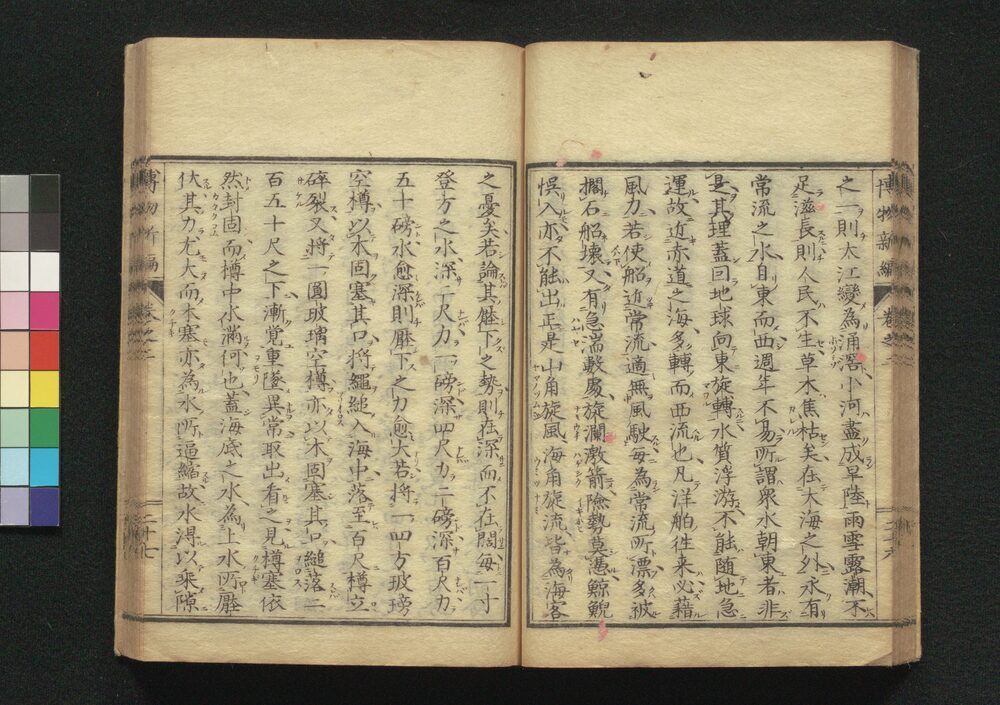 博物新編 卷之二 二十六
之一則大江變為涌沼小河盡成旱陸雨雪露潮不
足滋長則人民不生草木焦枯矣在大海之外永有
常流之水自東而西週年不易所謂衆水朝東者非
是其理蓋回地球向東旋轉水質浮游不能隨地急
運故近赤道之海多轉而西流也凡洋舶往来必藉
風力若使船近常流適無風駛每為常流所漂多被
擱石船壊又有急湍數處旋瀾激箭險勢莫憑鯨鯢
悞入亦不能出正是山角旋風海角旋流皆為海客
之憂矣若論其壓下之勢則在深而不在闊每一寸
登方之水深一尺力一磅深四尺力二磅深百尺力
五十磅水愈深則壓下之力愈大若將一四方玻瑺
空樽以木固塞其口將繩縋入海中落至一百尺樽立
碎裂又將一圓玻瑺空樽亦以木固塞其口縋落二
百五十尺之下漸覚重墜異常取出看之見樽塞依
然封固而樽中水滿何也蓋海底之水為上水所壓
伏其力尤大而木塞亦為水所逼縮故水得以乘隙
博物新編 卷之二 二十七